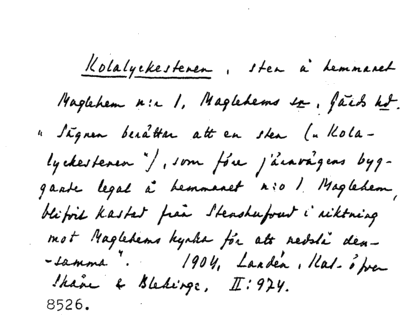 Kolalyckestenen, sten å hemmanet
Maglehem n:r 1, Maglehems sn, Gärds hd.
"Sägnen berättar att en sten ("Kola-
lyckestenen"), som före järnvägens byg-
gande legat å hemmanet n:o 1 Maglehem,
blifvit kastad från Stenshufvud i riktning
mot Maglehems kyrka för att nedslå den-
samma". 1904, Landén, Kat. öfver
Skåne & Blekinge, II:974.
8526.